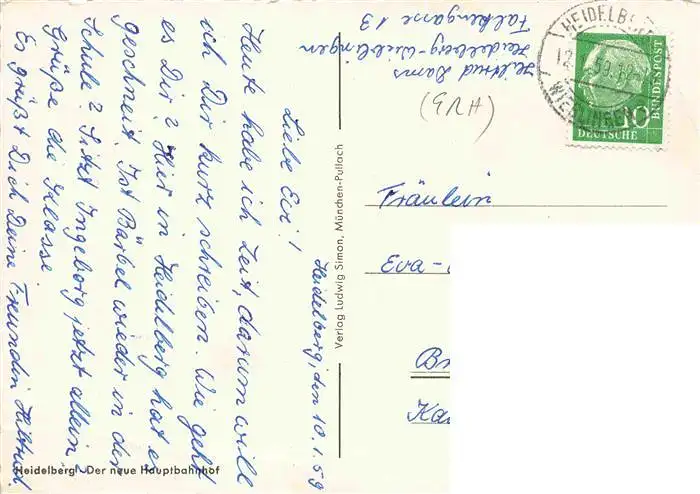 Heidelberg, den 10.1.59
Liebe Evi!
Heute habe ich Zeit, darum will
ich Dir kurz schreiben. Wie geht
es Dir? Hier in Heidelberg hat es
geschneit. Ist Bärbel wieder in der
Schule? Sitzt Ingeborg jetzt allein?
Grüße die Klasse.
Es grüßt Dich Deine Freundin Hiltrud.
Heidelberg Der neue Hauptbahnhof
Verlag Ludwig Simon, München-Pullach
Hiltrud Dams
Heidelberg-Wieblingen
Falkengasse 13
HEIDELB
12. 59.
WIEBLINGEN
10
DEUTSCHE
BUNDESPOST
Fräulein
Eva-
B
Ka